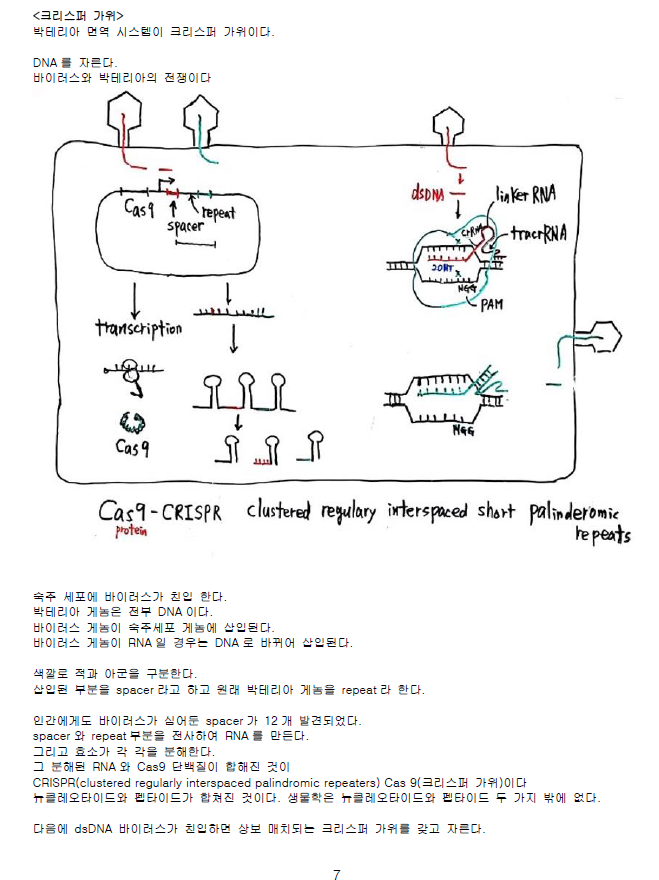 <크리스퍼 가위>
박테리아 면역 시스템이 크리스퍼 가위이다.
DNA를 자른다.
바이러스와 박테리아의 전쟁이다
Cas9
repeat
spacer
transcription
Cas9
dsDNA
linker RNA
crRNA
tracrRNA
20NT
NGG
PAM
NGG
Cas9-CRISPR clustered regulary interspaced short palinderomic
protein
repeats
숙주 세포에 바이러스가 침입 한다.
박테리아 게놈은 전부 DNA이다.
바이러스 게놈이 숙주세포 게놈에 삽입된다.
바이러스 게놈이 RNA일 경우는 DNA로 바뀌어 삽입된다.
색깔로 적과 아군을 구분한다.
삽입된 부분을 spacer라고 하고 원래 박테리아 게놈을 repeat라 한다.
인간에게도 바이러스가 심어둔 spacer가 12개 발견되었다.
spacer와 repeat부분을 전사하여 RNA를 만든다.
그리고 효소가 각 각을 분해한다.
그 분해된 RNA와 Cas9 단백질이 합해진 것이
CRISPR(clustered regularly interspaced palindromic repeaters) Cas 9(크리스퍼 가위)이다
뉴클레오타이드와 펩타이드가 합쳐진 것이다. 생물학은 뉴클레오타이드와 펩타이드 두 가지 밖에 없다.
다음에 dsDNA 바이러스가 침입하면 상보 매치되는 크리스퍼 가위를 갖고 자른다.
7